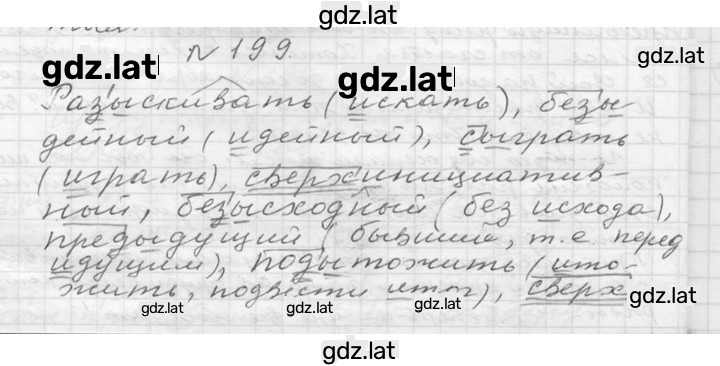 gdz.lat
№ 199.
gdz.lat
gdz.lat
gdz.lat
Разыскивать (искать), безы-
дейный (идейный), сыграть
(играть), сверхинициатив-
ный, безысходный (без исхода),
предыдущий (бывший, т.е. перед
идущим), подытожить (ито-
жить, подвести итог), сверх
gdz.lat gdz.lat gdz.lat gdz.lat
gdz.lat